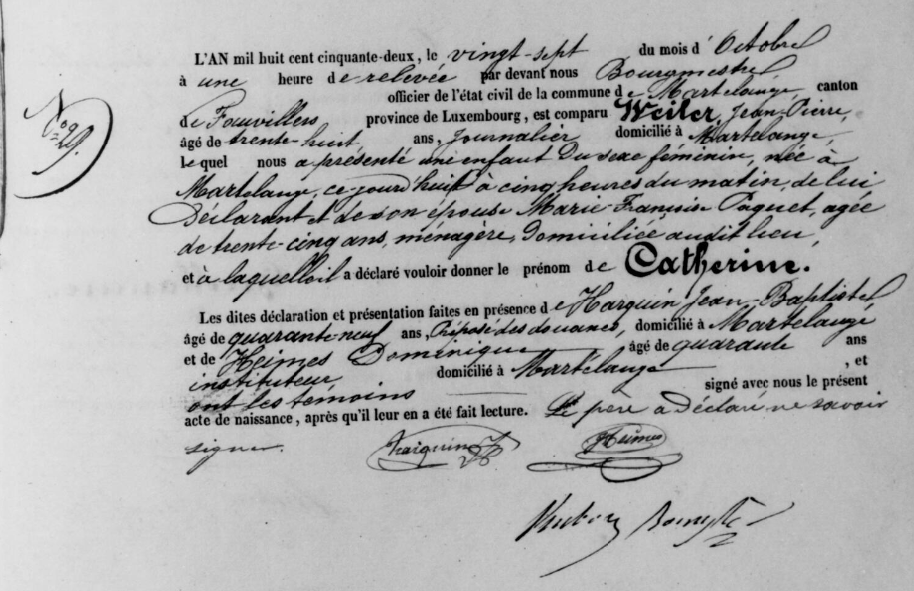 L'AN mil huit cent cinquante-deux, le vingt-sept du mois d'Octobre
à une heure de relevée par devant nous Bourgmestre
officier de l'état civil de la commune de Martelange canton
de Fauvillers province de Luxembourg, est comparu Weiler, Jean-Pierre,
âgé de trente-huit ans, Journalier domicilié à Martelange,
lequel nous a présenté un enfant du sexe féminin, née à
Martelange, ce jourd'huit à cinq heures du matin, de lui
Déclarant et de son épouse Marie-Françoise Paquet, agée
de trente-cinq ans, ménagère, Domiciliée audit lieu,
et à laquelle il a déclaré vouloir donner le prénom de Catherine.
Les dites déclaration et présentation faites en présence de Harquin Jean-Baptiste
âgé de quarante-neuf ans, Préposé des douanes, domicilié à Martelange
et de Heimes Dominique âgé de quarante ans
instituteur, domicilié à Martelange, et
ont les temoins signé avec nous le présent
acte de naissance, après qu'il leur en a été fait lecture. Le père a Déclaré ne savoir
signer.
Harquin JB Heimes